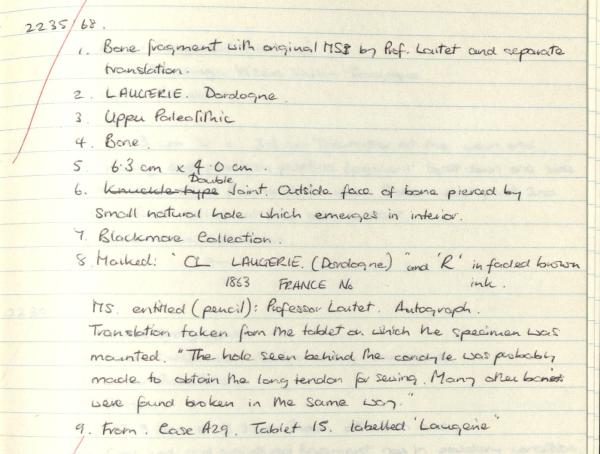 2235/68.
1. Bone fragment with original MSS by Prof. Lartet and separate
translation.
2. LAUGERIE. Dordogne.
3. Upper Paleolithic
4. Bone.
5. 6.3 cm x 4.0 cm.
Double
6. Knuckle-type Joint. Outside face of bone pierced by
small natural hole which emerges in interior.
7. Blackmore Collection.
8. Marked: "CL LAUGERIE. (Dordogne)" and 'R' in faded brown
1863 FRANCE No ink.
MS. entitled (pencil): Professor Lartet. Autograph.
Translation taken from the tablet on which the specimen was
mounted. "The hole seen behind the condyle was probably
made to obtain the long tendon for sewing. Many other bones
were found broken in the same way."
9. From. Case A29. Tablet 15. labelled 'Laugerie"